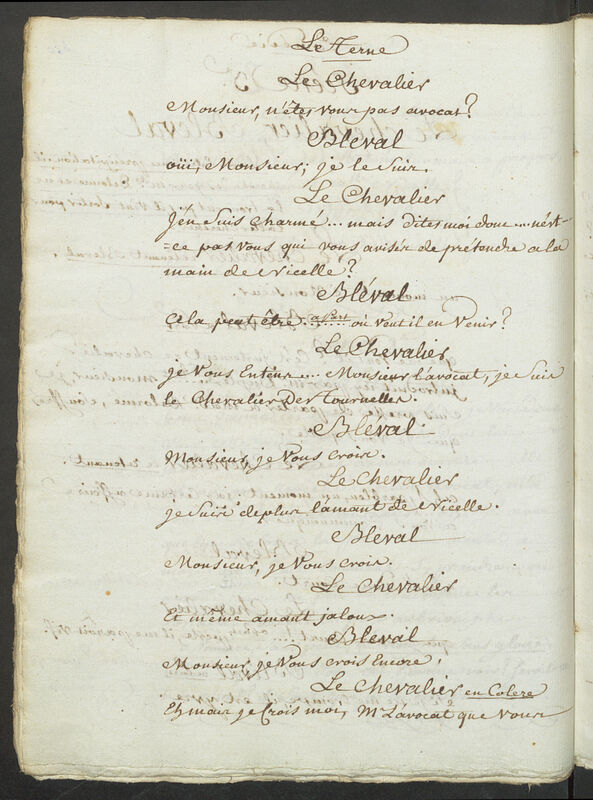 Le Terne
Le Chevalier
Monsieur, n'êtes vous pas avocat?
Bleval
oüi, Monsieur; je le suis.
Le Chevalier
J'en suis charmé... mais dites moi donc... n'ést-
=ce pas vous qui vous avisés de prétendre a la
main de Nicelle?
Bléval
Cela peut être. a Part où veut il en venir?
Le Chevalier
je vous Entens... Monsieur l'avocat, je suis
le Chevalier Des Tournelles.
Bleval
Monsieur, je vous crois.
Le Chevalier
je suis de plus l'amant de Nicelle.
Bleval
Monsieur, je vous crois.
Le Chevalier
Et même amant jaloux.
Bleval
Monsieur je vous crois Encore,
Le Chevalier en Colere
Eh mais je Crois moi, Mr L'avocat que vous